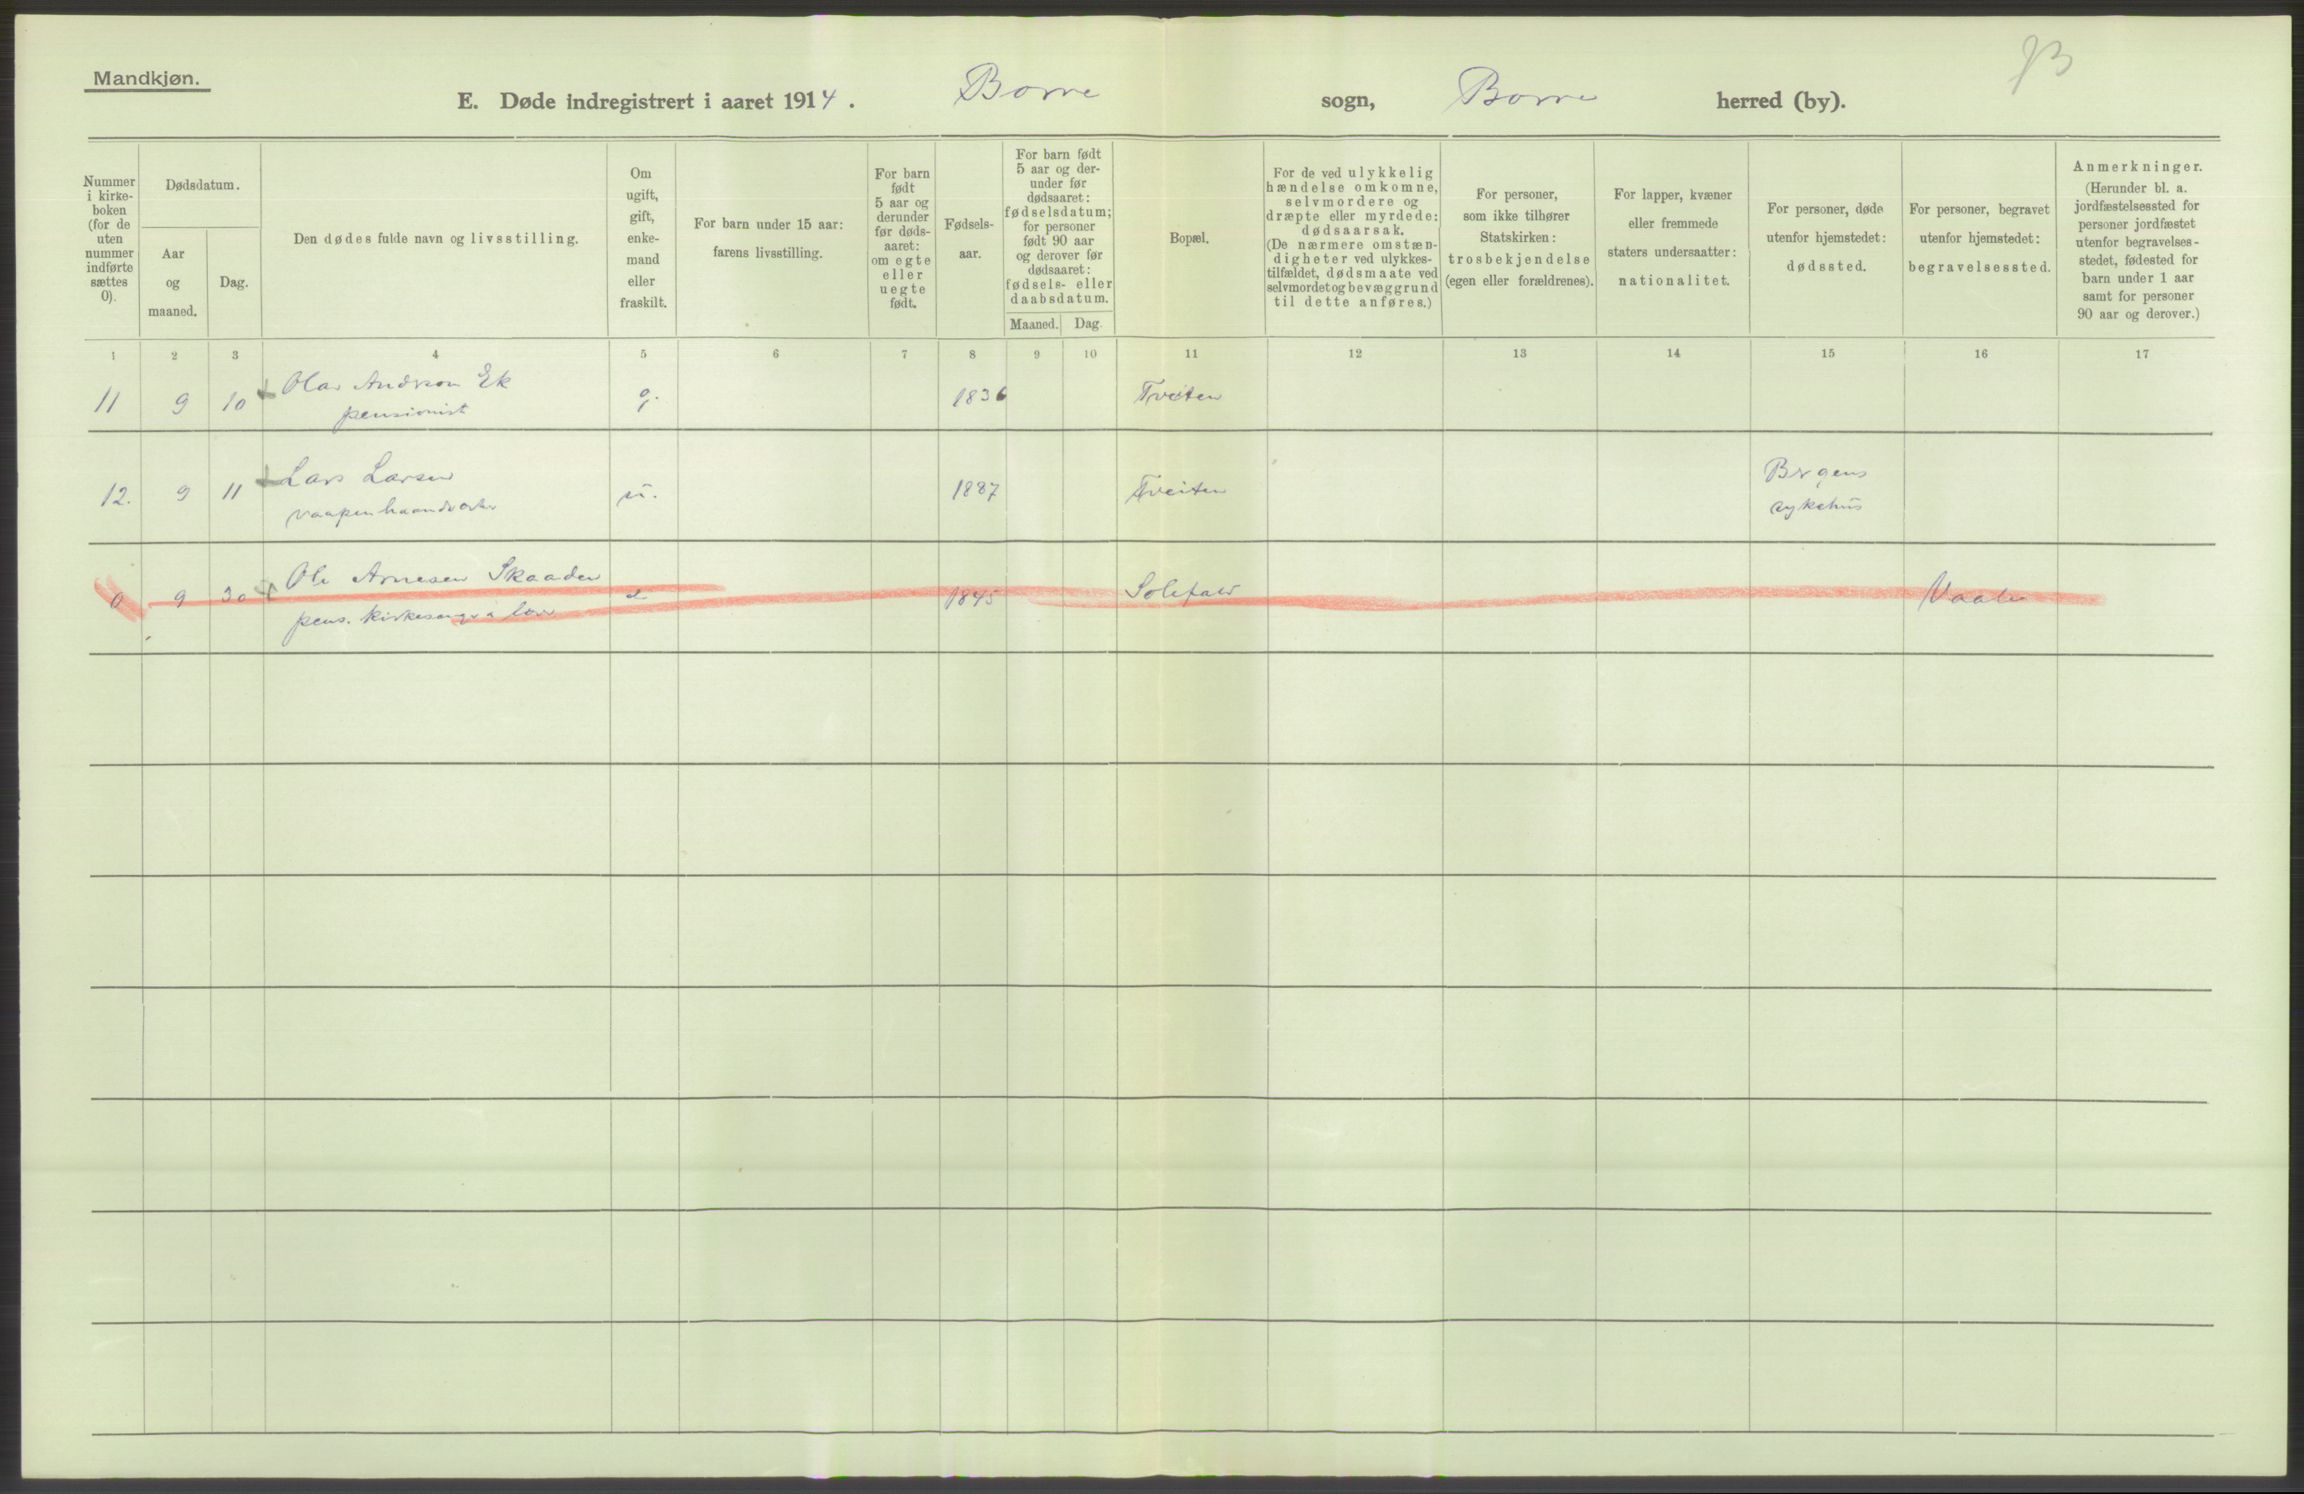 Mandkjøn.
E. Døde indregistrert i aaret 1914. Borre sogn, Borre herred (by).
Nummer
i kirke-
boken
(for de
uten
nummer
indførte
sættes
0).
Dødsdatum.
Aar
og
maaned.
Dag.
Den dødes fulde navn og livsstilling.
Om
ugift,
gift,
enke-
mand
eller
fraskilt.
For barn under 15 aar:
farens livsstilling.
For barn
født
5 aar og
derunder
før døds-
aaret:
om egte
eller
uegte
født.
Fødsels-
aar.
For barn født
5 aar og der-
under før
dødsaaret:
fødselsdatum;
for personer
født 90 aar
og derover før
dødsaaret:
fødsels- eller
daabsdatum.
Maaned. Dag.
Bopæl.
For de ved ulykkelig
hændelse omkomne,
selvmordere og
dræpte eller myrdede:
dødsaarsak.
(De nærmere omstæn-
digheter ved ulykkes-
tilfældet, dødsmaate ved
selvmordet og bevæggrund
til dette anføres.)
For personer,
som ikke tilhører
Statskirken:
trosbekjendelse
(egen eller forældrenes).
For lapper, kvæner
eller fremmede
staters undersaatter:
nationalitet.
For personer, døde
utenfor hjemstedet:
dødssted.
For personer, begravet
utenfor hjemstedet:
begravelsessted.
Anmerkninger.
(Herunder bl. a.
jordfæstelsessted for
personer jordfæstet
utenfor begravelses-
stedet, fødested for
barn under 1 aar
samt for personer
90 aar og derover.)
1 2 3 4 5 6 7 8 9 10 11 12 13 14 15 16 17
11 9 10 Olav Andrson Ek g. 1836 Tveiten
pensionist
12. 9 11 Lars Larsen u. 1887 Tveiten Brgens
vaapenhaandverker sykehus
0 9 30 Ole Arnesen Skaaden 1845 Solefald Vaale
pens. kirkesanger